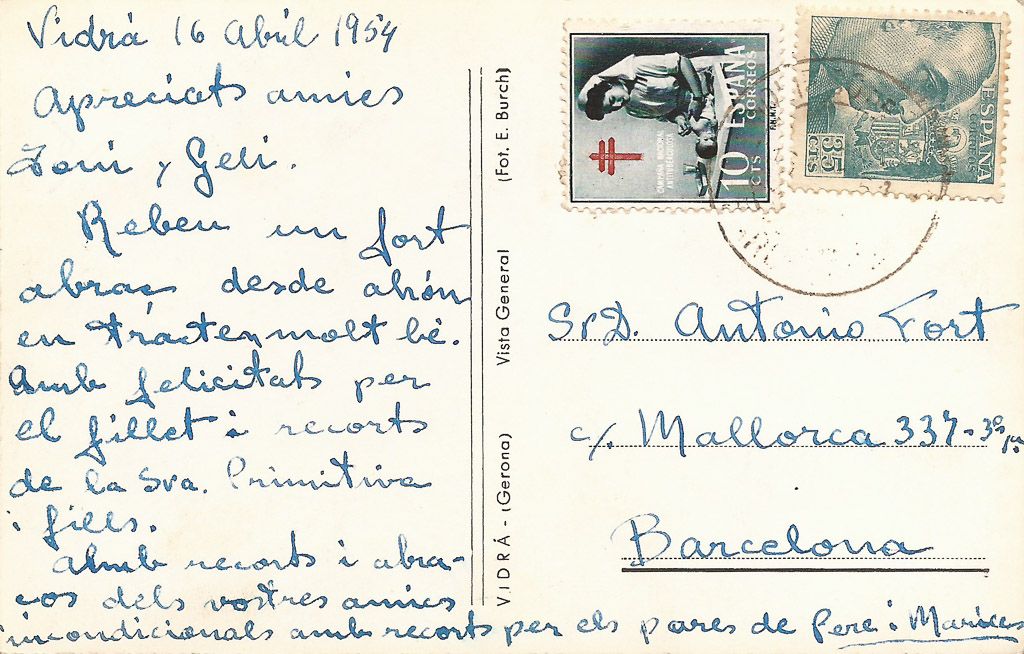 Vidrá 16 Abril 1954
Apreciats amics
Toni y Geli.
Rebeu un fort
abraç desde ahón
en tracten molt bé.
Amb felicitats per
el fillet i recorts
de la Sra. Primitiva
i fills.
Amb recorts i abra-
ços dels vostres amics
incondicionals amb recorts per els pares de Pere i
VIDRÁ - (Gerona) Vista General (Fot. E. Burch)
ESPAÑA
CORREOS
10 CTS
CAMPAÑA NACIONAL
ANTITUBERCULOSA
F.N.M.T.
ESPAÑA
CORREOS
35 CTS
Sr. D. Antonio Fort
c/. Mallorca 337-3º
Barcelona